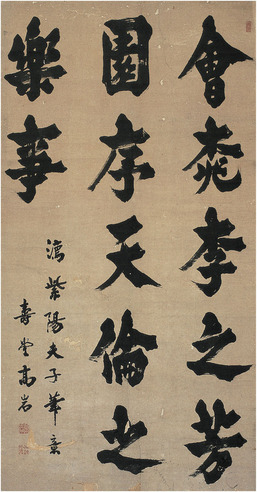 會桃李之芳
園序天倫之
樂事
紫陽夫子筆意
壽堂高岩